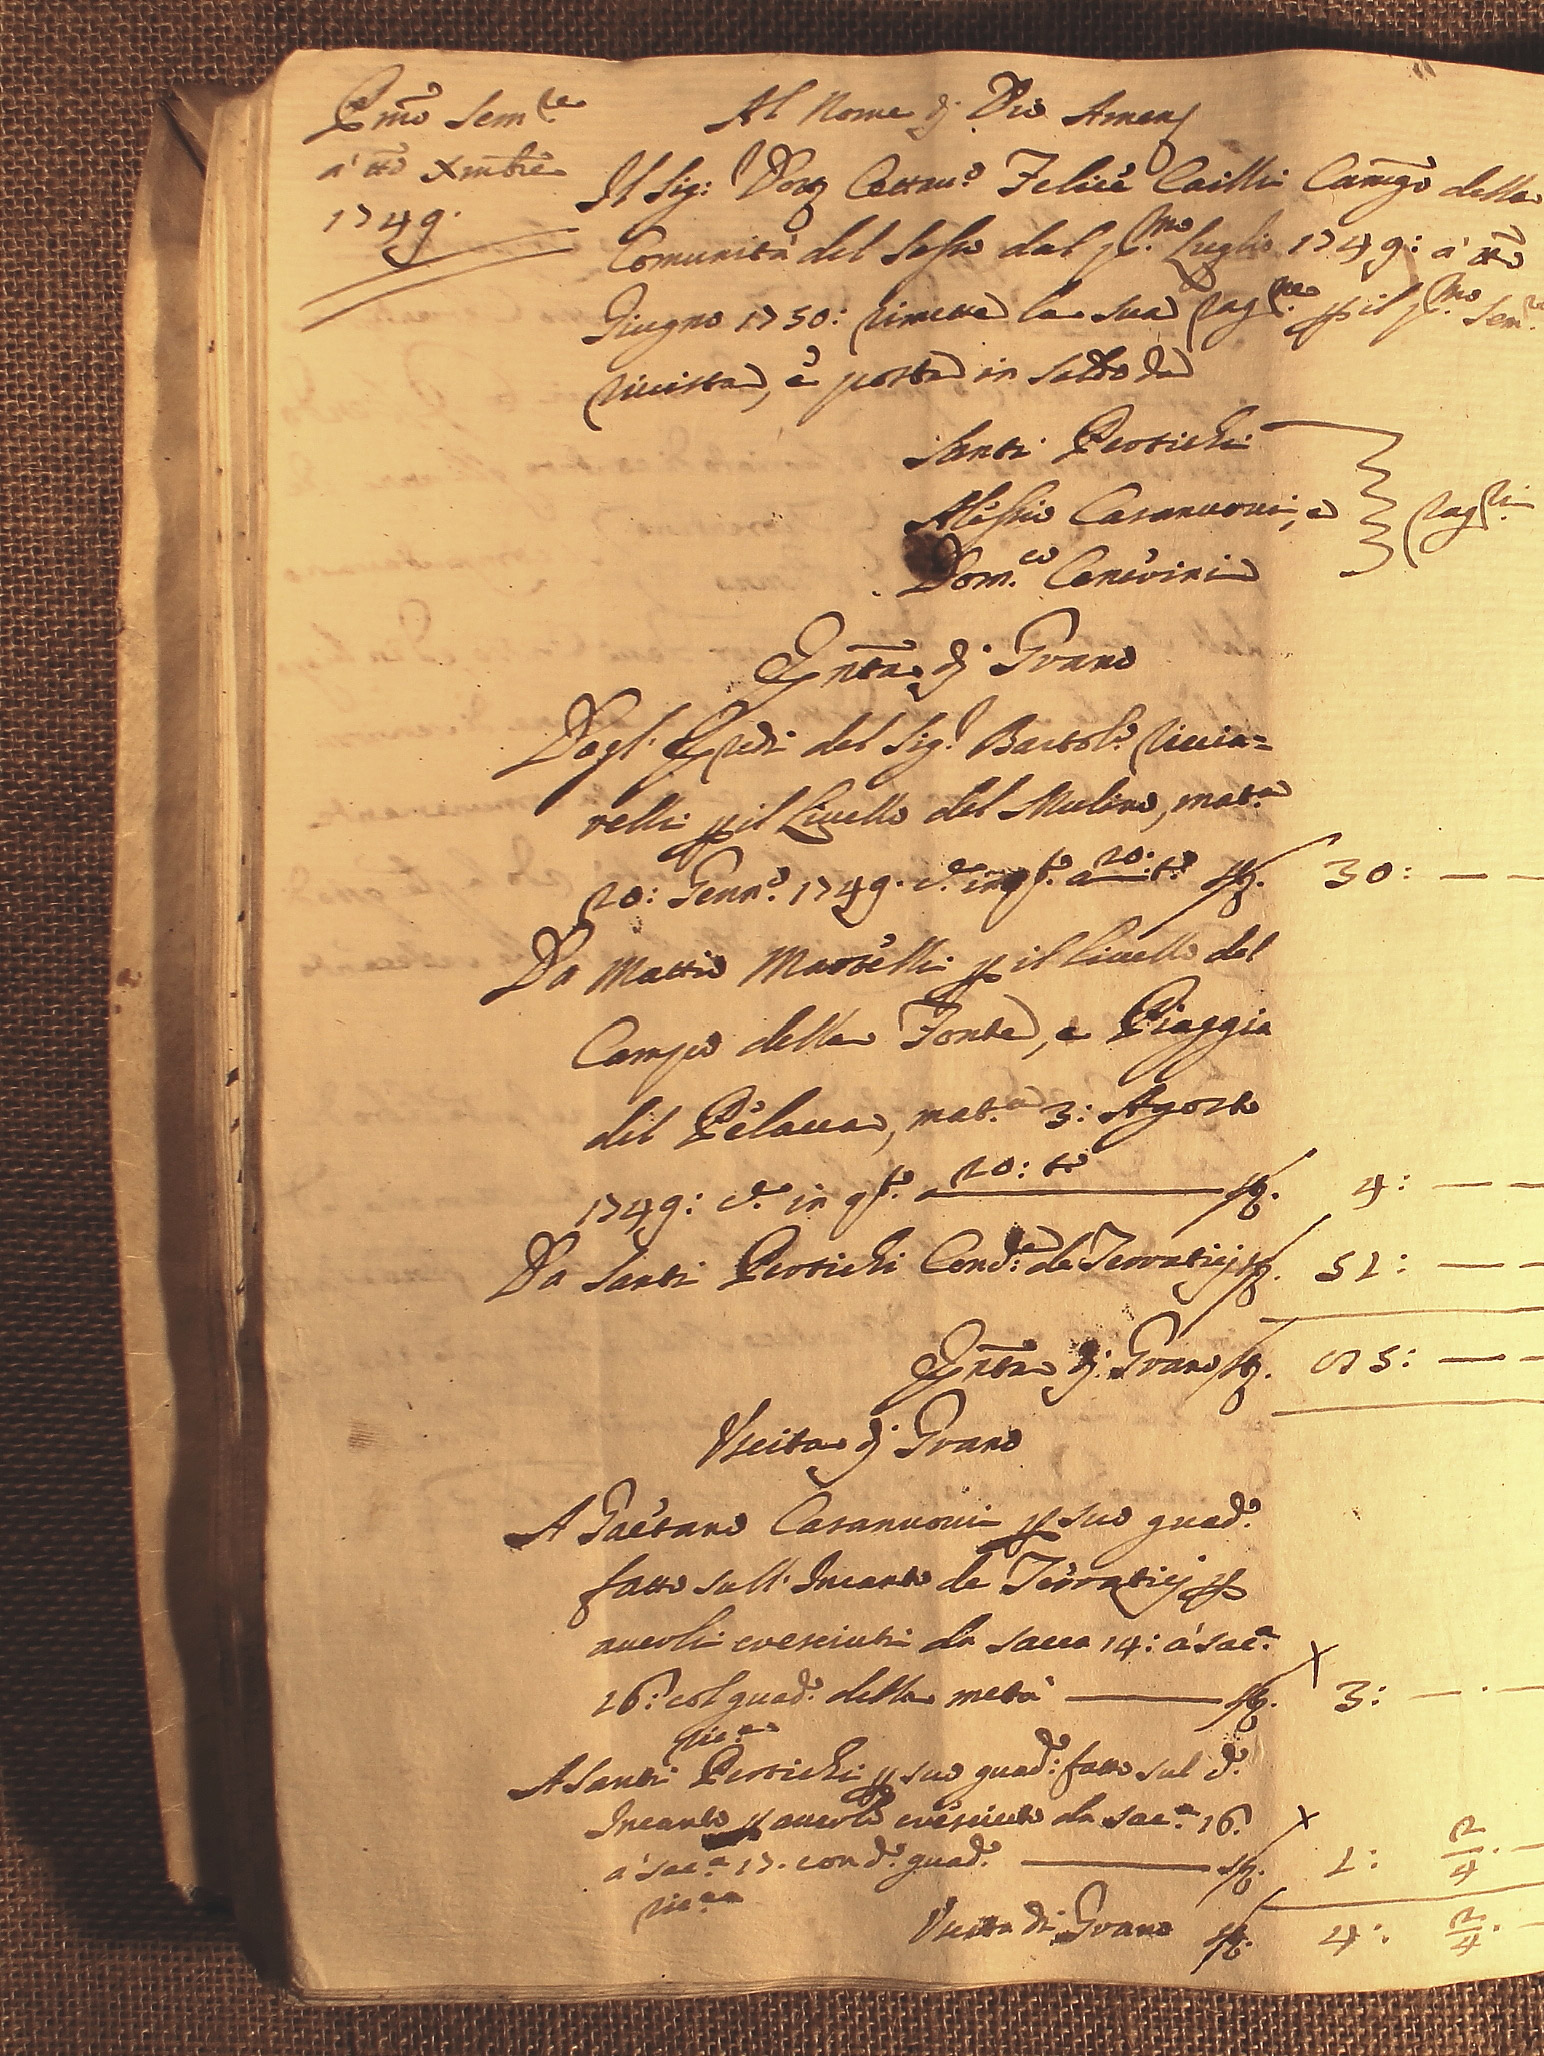 Pmo Sem.re
à tto Xmbre
1749.
Al Nome di Dio Amen
Il Sig: Dott Ottau.o Felice Cailli Camgo della
Comunità del Sasso dal p.mo Luglio 1749: à tto
Giugno 1750: rimette la sua rag.ne p il p.mo Sem.re
riuista, e posta in saldo da
Santi Pertichi
Alessio Casanuoui, e
Dom.co Cenerini
rag.ri
Entta di Grano
Dagl. Eredi del Sig.r Bartol.o riccia=
relli p il Liuello del Mulino, mat.o
20: Genn.o 1749. 20: t.o 30: —
Da Mattio Martelli p il liuello del
Campo della Fonte, e Piaggia
del Pelacca, mat.o 3: Agosto
1749: c.e in q.o a 20: to 4: —
Da Santi Pertichi Cond.e de Terratici 51:
Entta di Grano 85: —
Vscita di Grano
A Gaetano Casanuoui p suo guad.o
fatto sull. Incanto de Terratici p
auerli cresciuti da sacca 14: à sac.a
16: col guad.o della metà 3: —
ric.a
A Santi Pertichi p suo guad.o fatto sul d.o
Incanto p auerlo cresciuto da sac.a 16.
à sac.a 17. con d.o guad.o 1: 2/4. —
ric.a
Vscita di Grano 4: 2/4. —